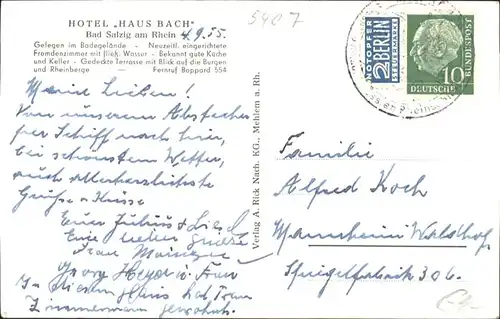 HOTEL „HAUS BACH"
Bad Salzig am Rhein 4.9.55.
Gelegen im Badegelände - Neuzeitl. eingerichtete
Fremdenzimmer mit fließ. Wasser - Bekannt gute Küche
und Keller - Gedeckte Terrasse mit Blick auf die Burgen
und Rheinberge - Fernruf Boppard 554
Meine Lieben!
Von unserem Abstecher
per Schiff nach hier,
bei schönstem Wetter,
euch allerherzlichste
Grüße + Küsse
Euer Julius +
Eine lieben Grüße
Frau
Georg Heyer u. Frau
In diesem Haus hat Frau
Zimmermann gewohnt.
Verlag A. Rick Nach. KG., Mehlem a. Rh.
5407
NOTOPFER
2 BERLIN
STEUERMARKE
10
DEUTSCHE
BUNDESPOST
Familie
Alfred Koch
Mannheim Waldhof
Spiegelfabrik 306.